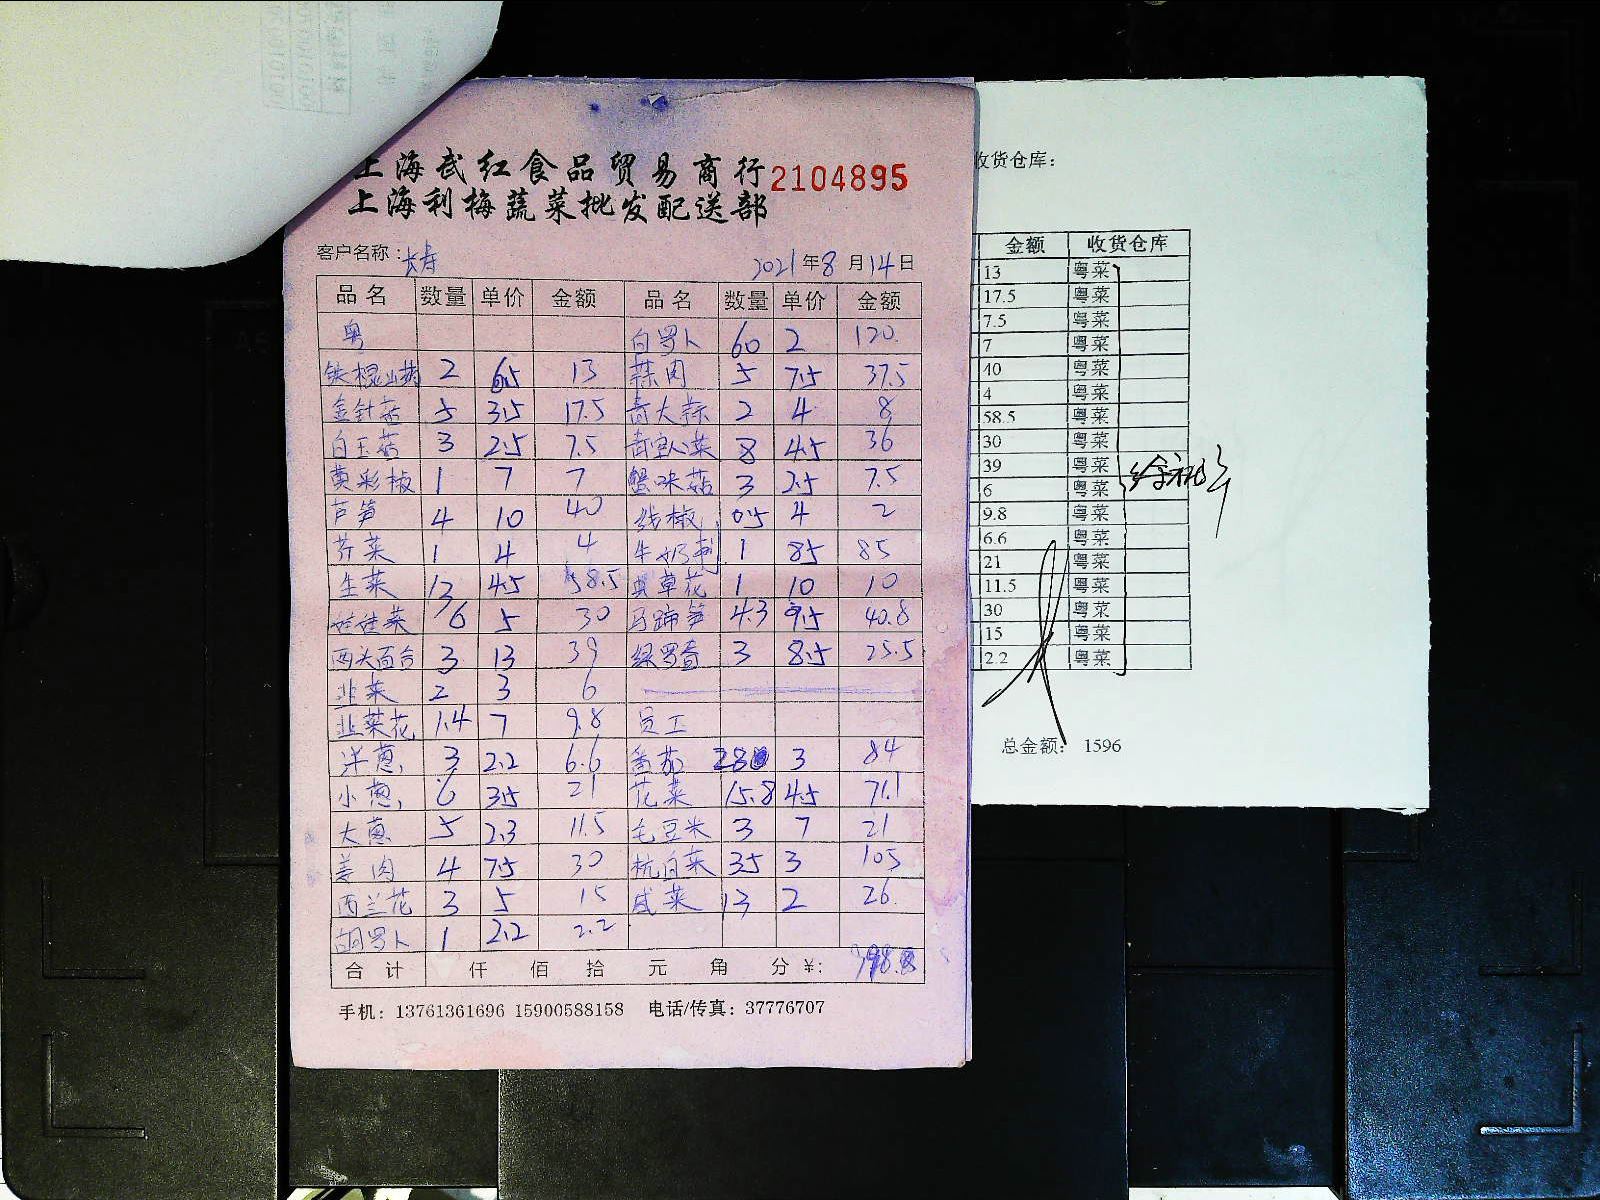 上海武红食品贸易商行
2104895
上海利梅蔬菜批发配送部
客户名称：长寿 2021年8月14日
品名 数量 单价 金额 品名 数量 单价 金额
粤 白罗卜 60 2 120
铁棍山药 2 6.5 13 蒜肉 5 7.5 37.5
金针菇 5 3.5 17.5 青大蒜 2 4 8
白玉菇 3 2.5 7.5 青空心菜 8 4.5 36
黄彩椒 1 7 7 蟹味菇 3 2.5 7.5
芦笋 4 10 40 线椒 0.5 4 2
芥菜 1 4 4 牛奶 1 85 85
生菜 13 4.5 58.5 虫草花 1 10 10
娃娃菜 6 5 30 马蹄笋 4.3 9.5 40.8
西头百合 3 13 39 绿罗 3 8.5 25.5
韭菜 2 3 6
韭菜花 1.4 7 9.8 员工
洋葱 3 2.2 6.6 番茄 28 3 84
小葱 6 3.5 21 花菜 15.8 4.5 71.1
大葱 5 2.3 11.5 毛豆米 3 7 21
姜肉 4 7.5 30 杭白菜 35 3 105
西兰花 3 5 15 咸菜 13 2 26
胡罗卜 1 2.2 2.2
合计 仟 佰 拾 元 角 分 ¥:
手机：13761361696 15900588158 电话/传真：37776707
收货仓库：
金额 收货仓库
13 粤菜
17.5 粤菜
7.5 粤菜
7 粤菜
40 粤菜
4 粤菜
58.5 粤菜
30 粤菜
39 粤菜
6 粤菜
9.8 粤菜
6.6 粤菜
21 粤菜
11.5 粤菜
30 粤菜
15 粤菜
2.2 粤菜
总金额： 1596